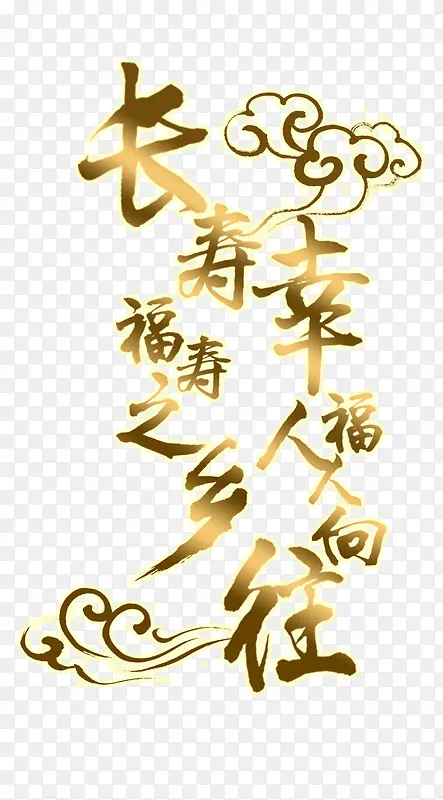 长寿
福寿之乡
幸福
人人向往